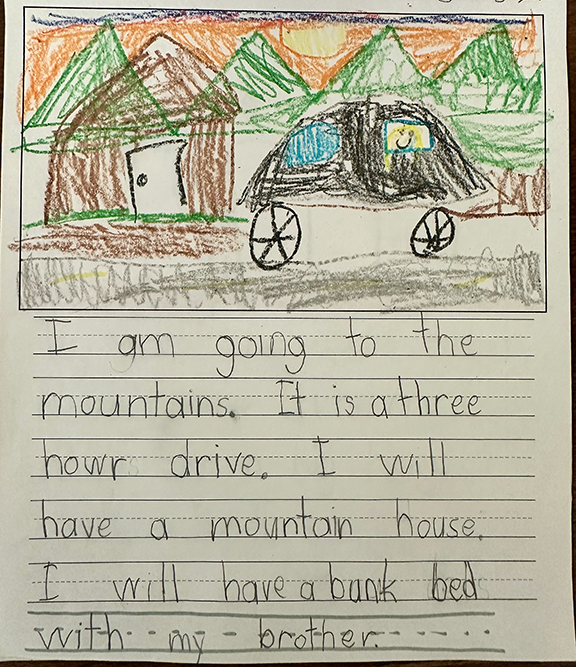 I am going to the
mountains. It is a three
howr drive. I will
have a mountain house.
I will have a bunk bed
with my brother.